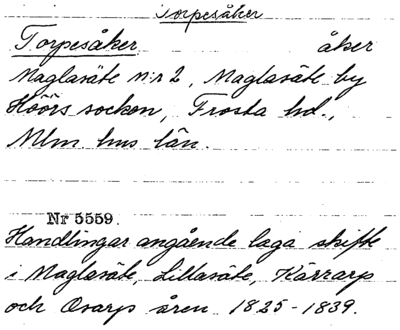 Torpesåker
Torpesåker åker
Maglasäte n:r 2, Maglasäte by
Höörs socken, Frosta hd.,
Mlm hus län.
Nr 5559.
Handlingar angående laga skifte
i Maglasäte, Lillasäte, Kärrarp
och Ovarp åren 1825-1839.